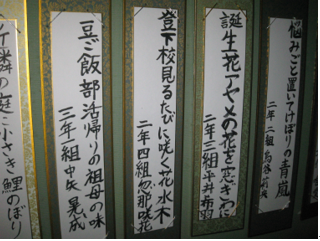 悩みごと置いてけぼりの青嵐
二年二組
誕生花アヤメの花を
二年三組平井希羽
登下校見るたびに咲く花水木
二年四組忽那咲花
豆ご飯部活帰りの祖母の味
三年一組中矢晃成
隣の庭に小さき鯉のぼり